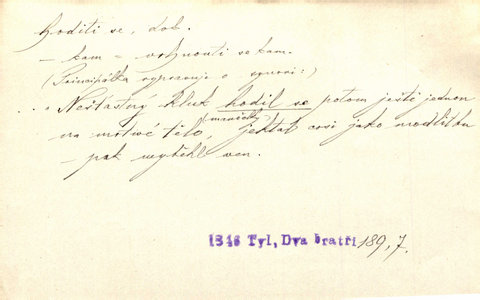 hoditi se, dok.
– kam = vrhnouti se kam.
(Principálka vypravuje o synovi:)
... Nešťastný kluk hodil se potom ještě jednou
na mrtvé tělo, (maničky) jektal cosi jako modlitbu
– pak vyběhl ven.
1846 Tyl, Dva bratři 189, 7.